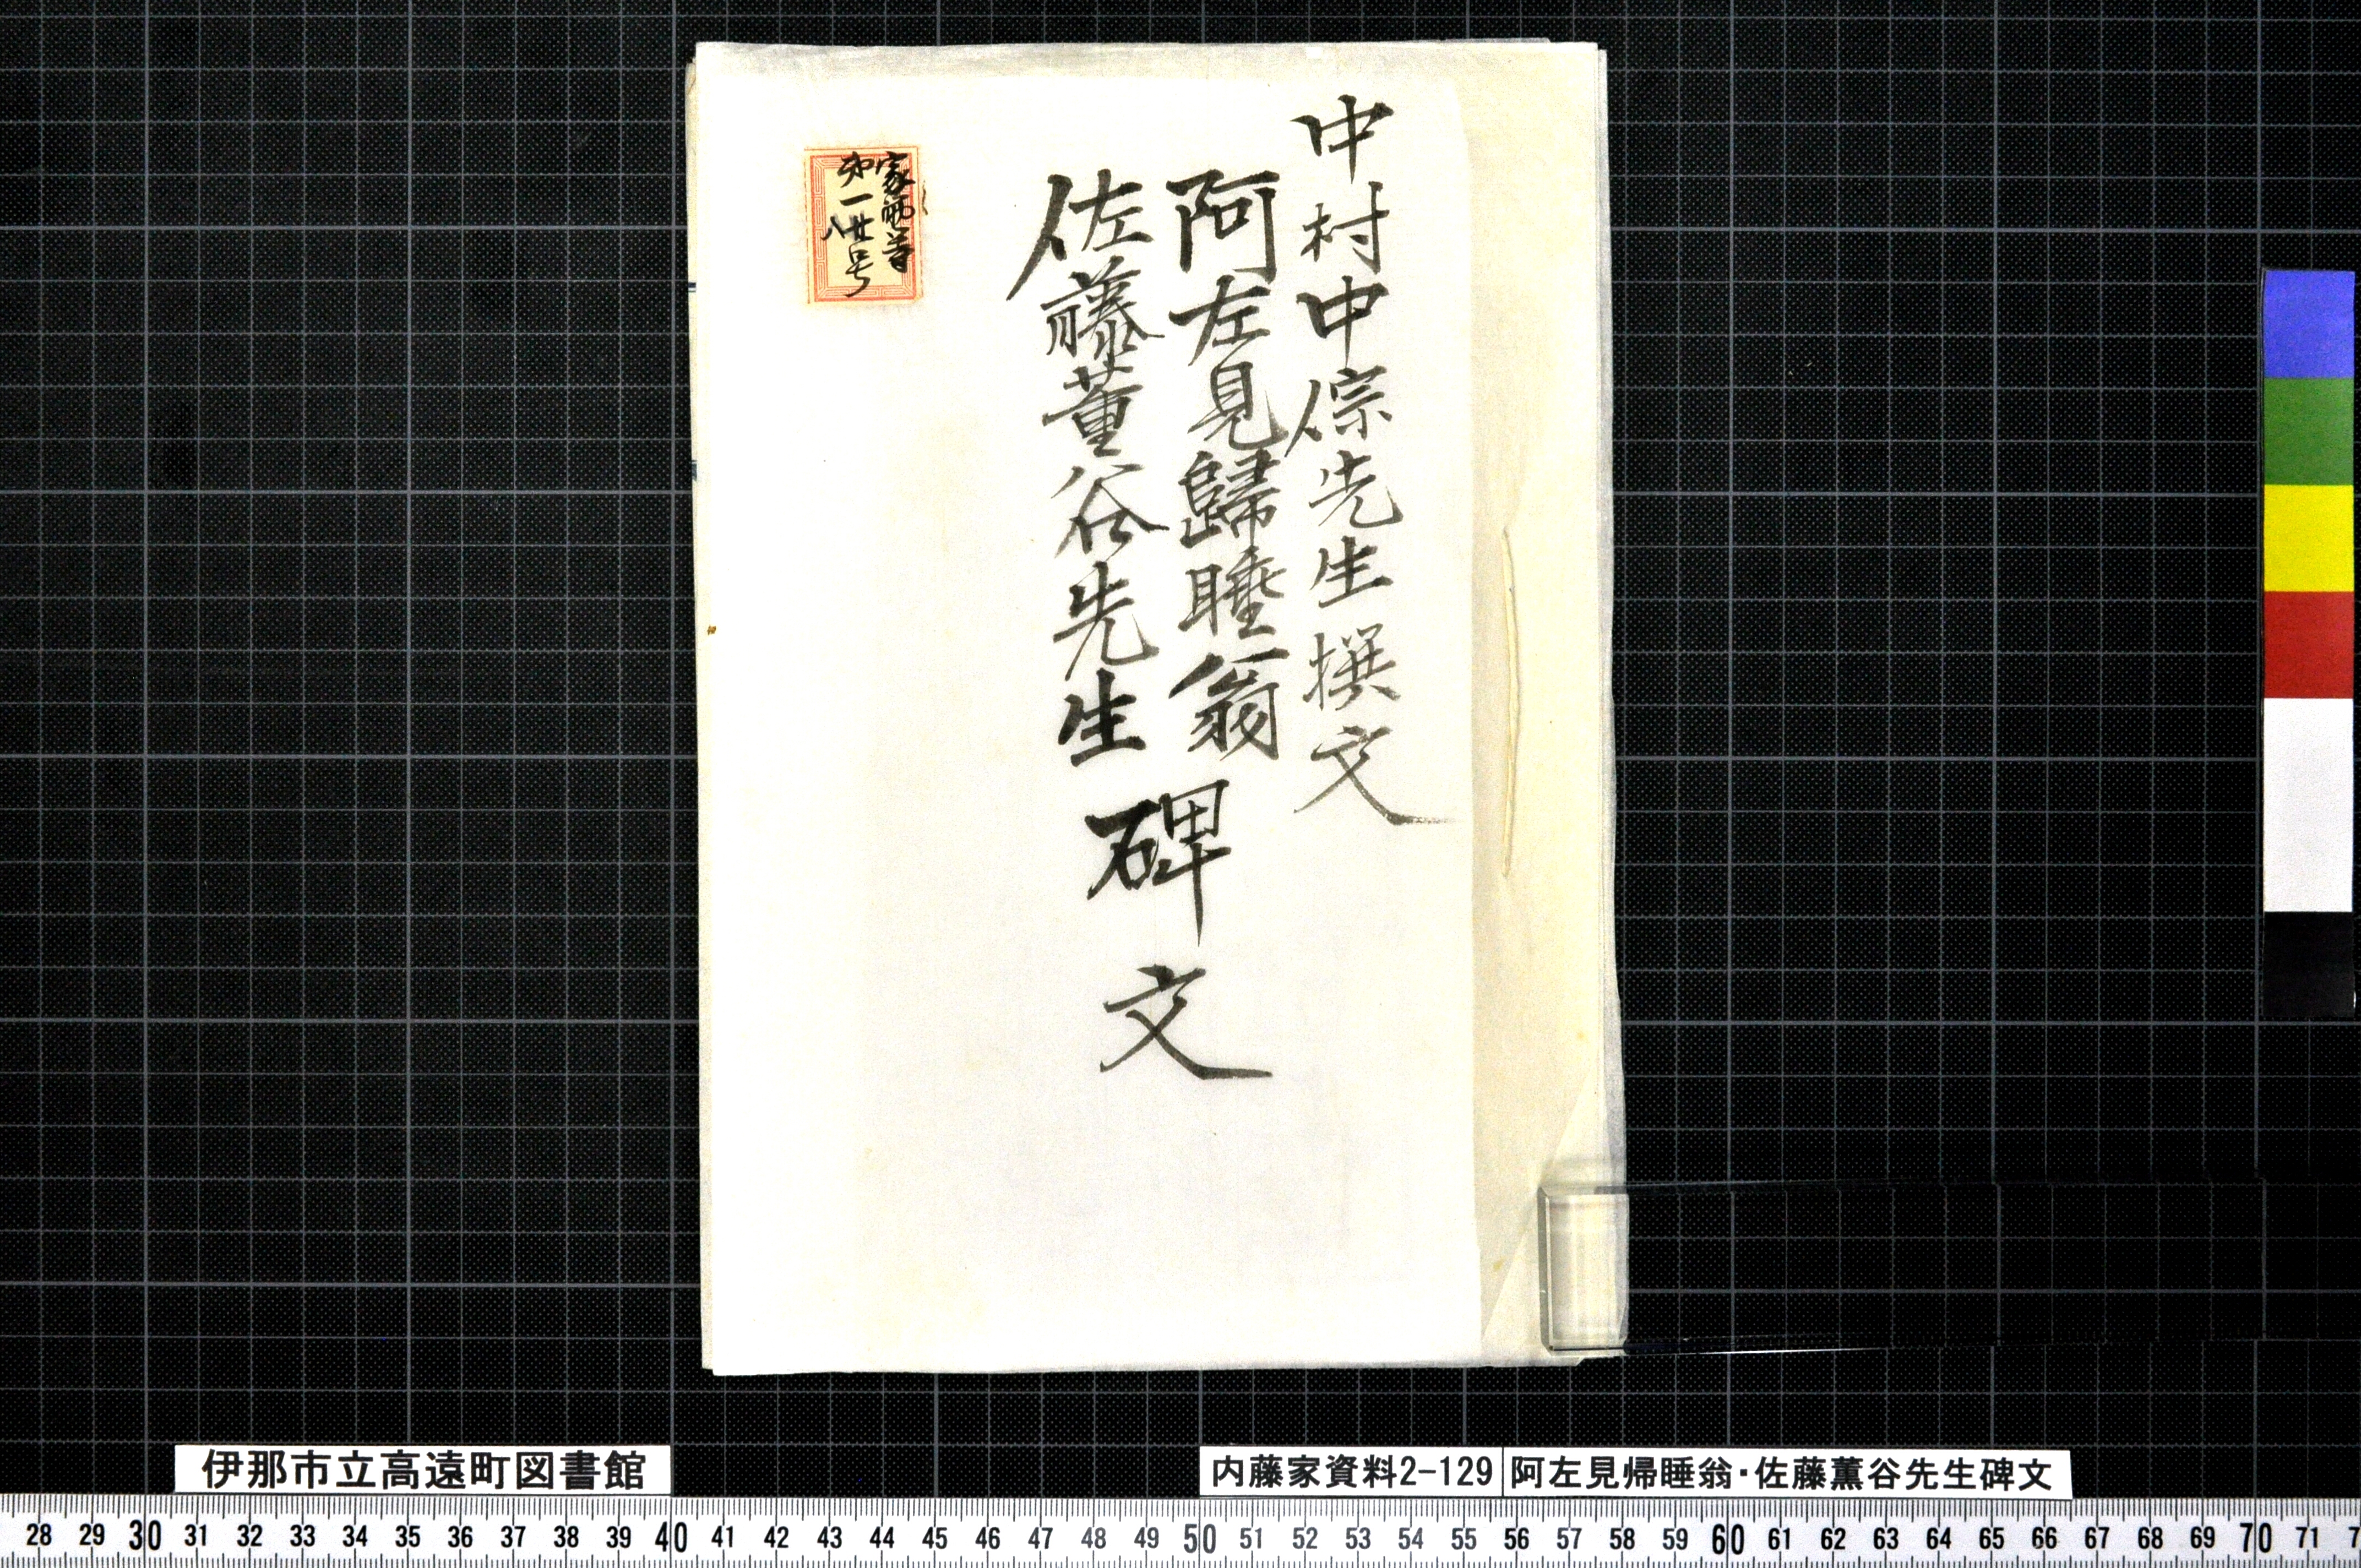 中村中倧先生撰文
阿左見歸睡翁
佐藤董谷先生
碑文
家
第一廿八号
伊那市立高遠町図書館
内藤家資料2-129
阿左見帰睡翁・佐藤薫谷先生碑文
28 29 30 31 32 33 34 35 36 37 38 39 40 41 42 43 44 45 46 47 48 49 50 51 52 53 54 55 56 57 58 59 60 61 62 63 64 65 66 67 68 69 70 71